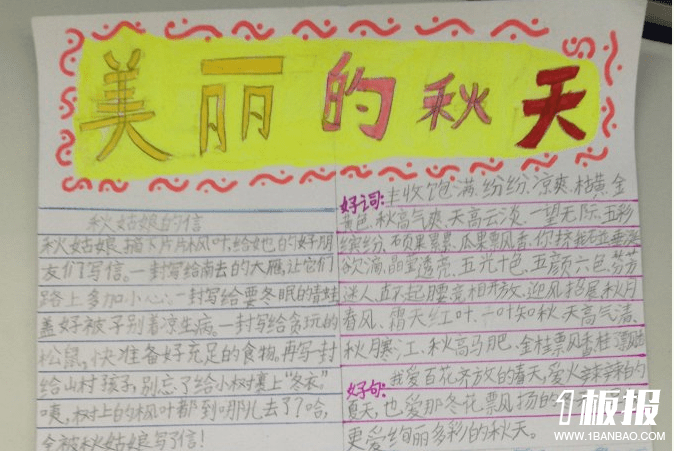 美丽的秋天
秋姑娘的信
秋姑娘,摘下片片枫叶,给她的好朋
友们写信。一封写给南去的大雁,让它们
路上多加小心。一封写给要冬眠的青蛙
盖好被子别着凉生病。一封写给贪玩的
松鼠,快准备好充足的食物。再写一封
给山村孩子,别忘了给小树裹上“冬衣”
咦,树上的枫叶都到哪儿去了?哈,
全被秋姑娘写了信!
好词:丰收饱满、纷纷、凉爽、枯黄、金
黄色、秋高气爽、天高云淡、一望无际、五彩
缤纷、硕果累累、瓜果票风香、你挤我碰、垂涎
欲滴、晶莹透亮、五光十色、五颜六色、芬芳
迷人、直不起腰、竞相开放、迎风招展、秋月
春风、霜天红叶、一叶知秋、天高气清、
秋月寒江、秋高马肥、金桂票风香
好句:我爱百花齐放的春天,爱火辣辣的
夏天,也爱那冬花票风扬的
更爱绚丽多彩的秋天。
1板报
WWW.1BANBAO.COM